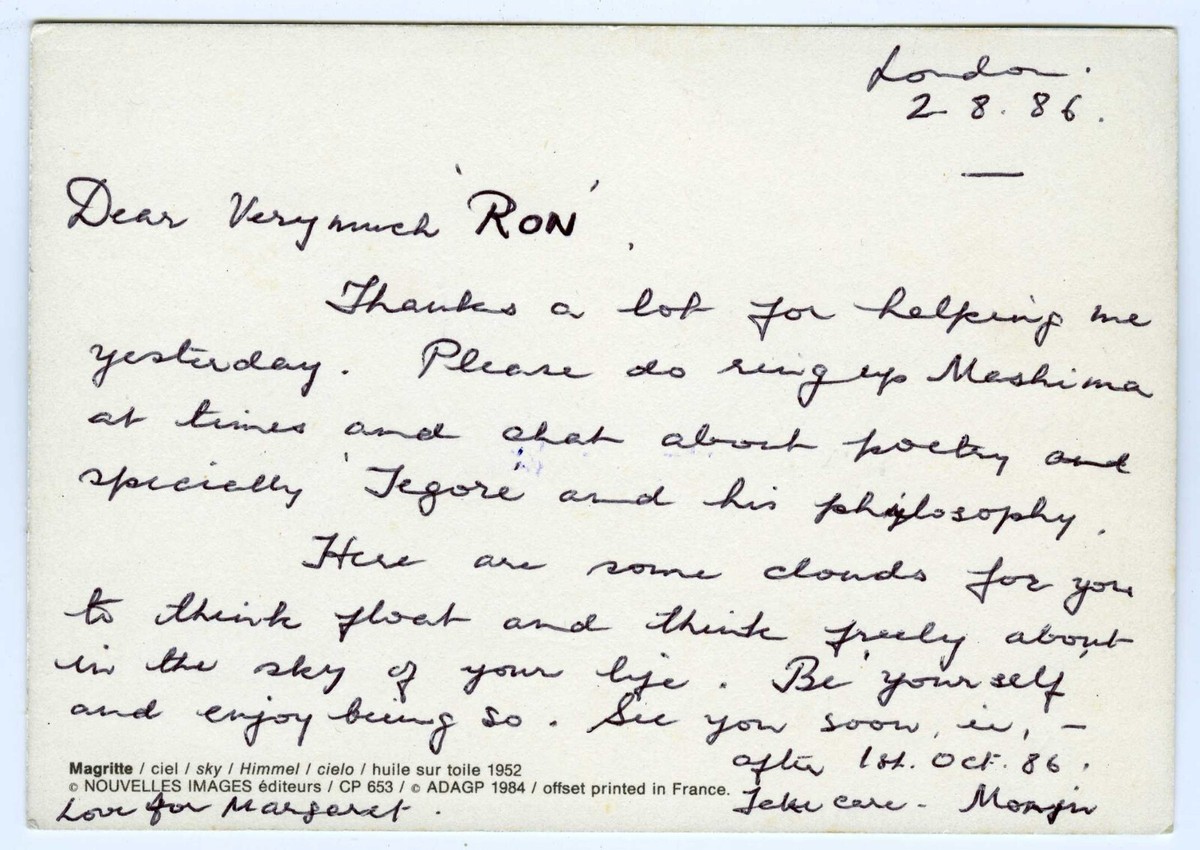 London.
2. 8. 86.
Dear Very much 'RON',
Thanks a lot for helping me
yesterday. Please do ring up Mashima
at times and chat about poetry and
specially 'Tegore' and his phylosophy.
Here are some clouds for you
to think float and think freely about
in the sky of your life. Be 'yourself'
and enjoy being so. See you soon, ie, –
after 1st. Oct. 86.
Magritte / ciel / sky / Himmel / cielo / huile sur toile 1952
© NOUVELLES IMAGES éditeurs / CP 653 / © ADAGP 1984 / offset printed in France.
Love for Margaret. Take care –